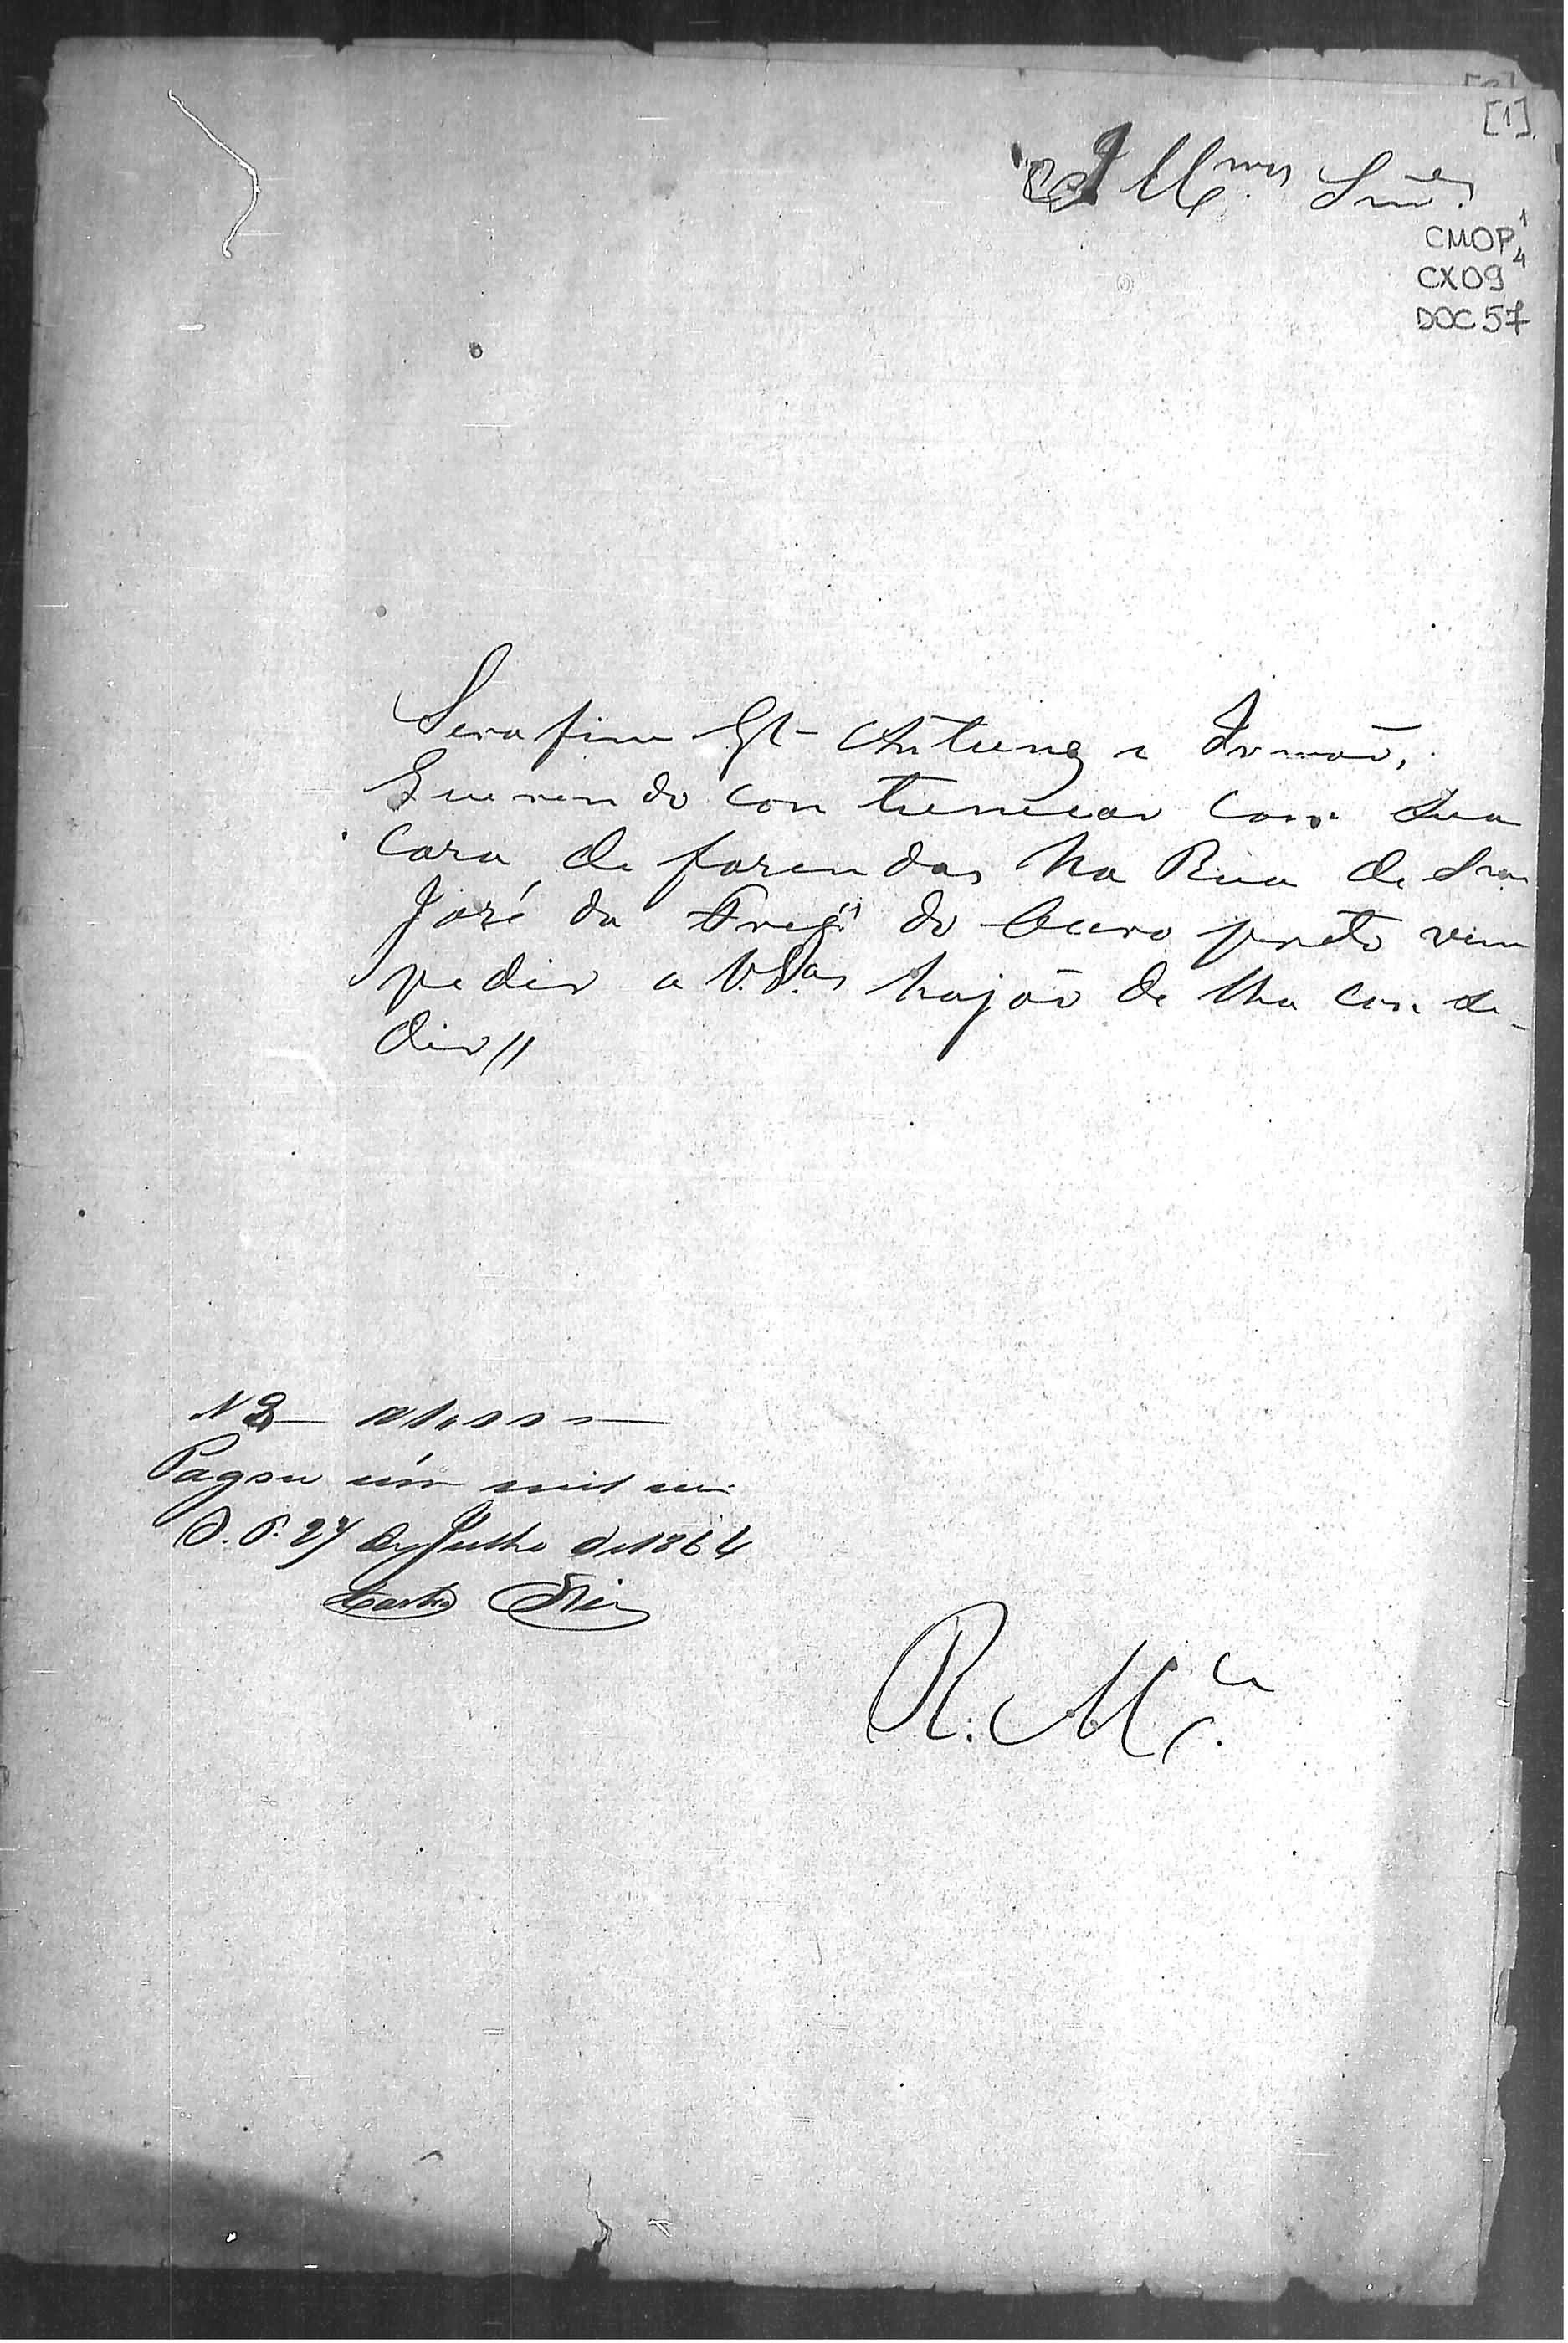 [1]
Illmos Snres
CMOP 1
4
CX09
DOC 57
Serafim Antunes e Irmaõ,
Querendo con tinuar com sua
Caza de fazendas na Rua de Sm
José da Frega do Ouro preto vem
pedir a V.Sas hajaõ de lha con se-
dir //
N 2
Pagou um mil reis
O. P. 27 de Julho de 1864
Castro
R. Mce